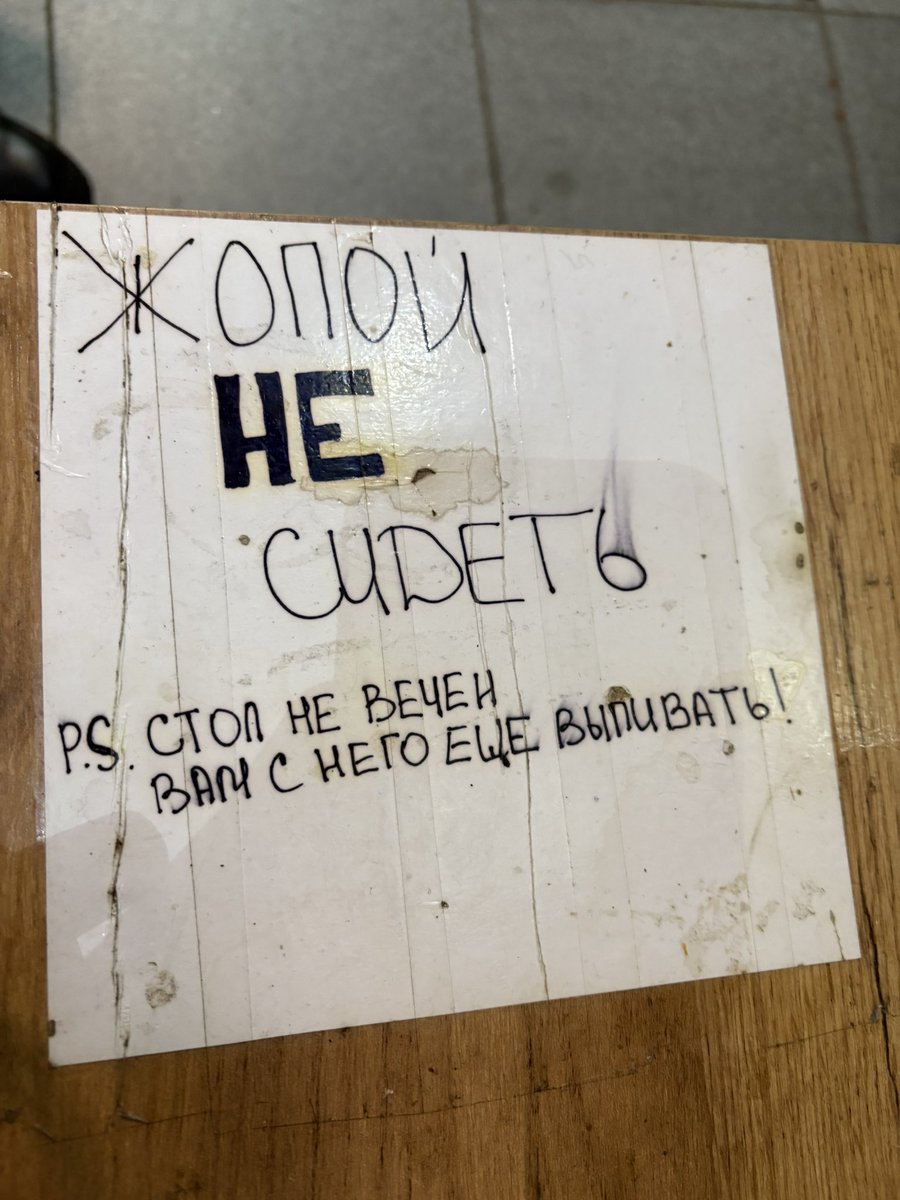 ЖОПОЙ
НЕ
СИДЕТЬ
P.S. СТОЛ НЕ ВЕЧЕН
ВАМ С НЕГО ЕЩЕ ВЫПИВАТЬ!